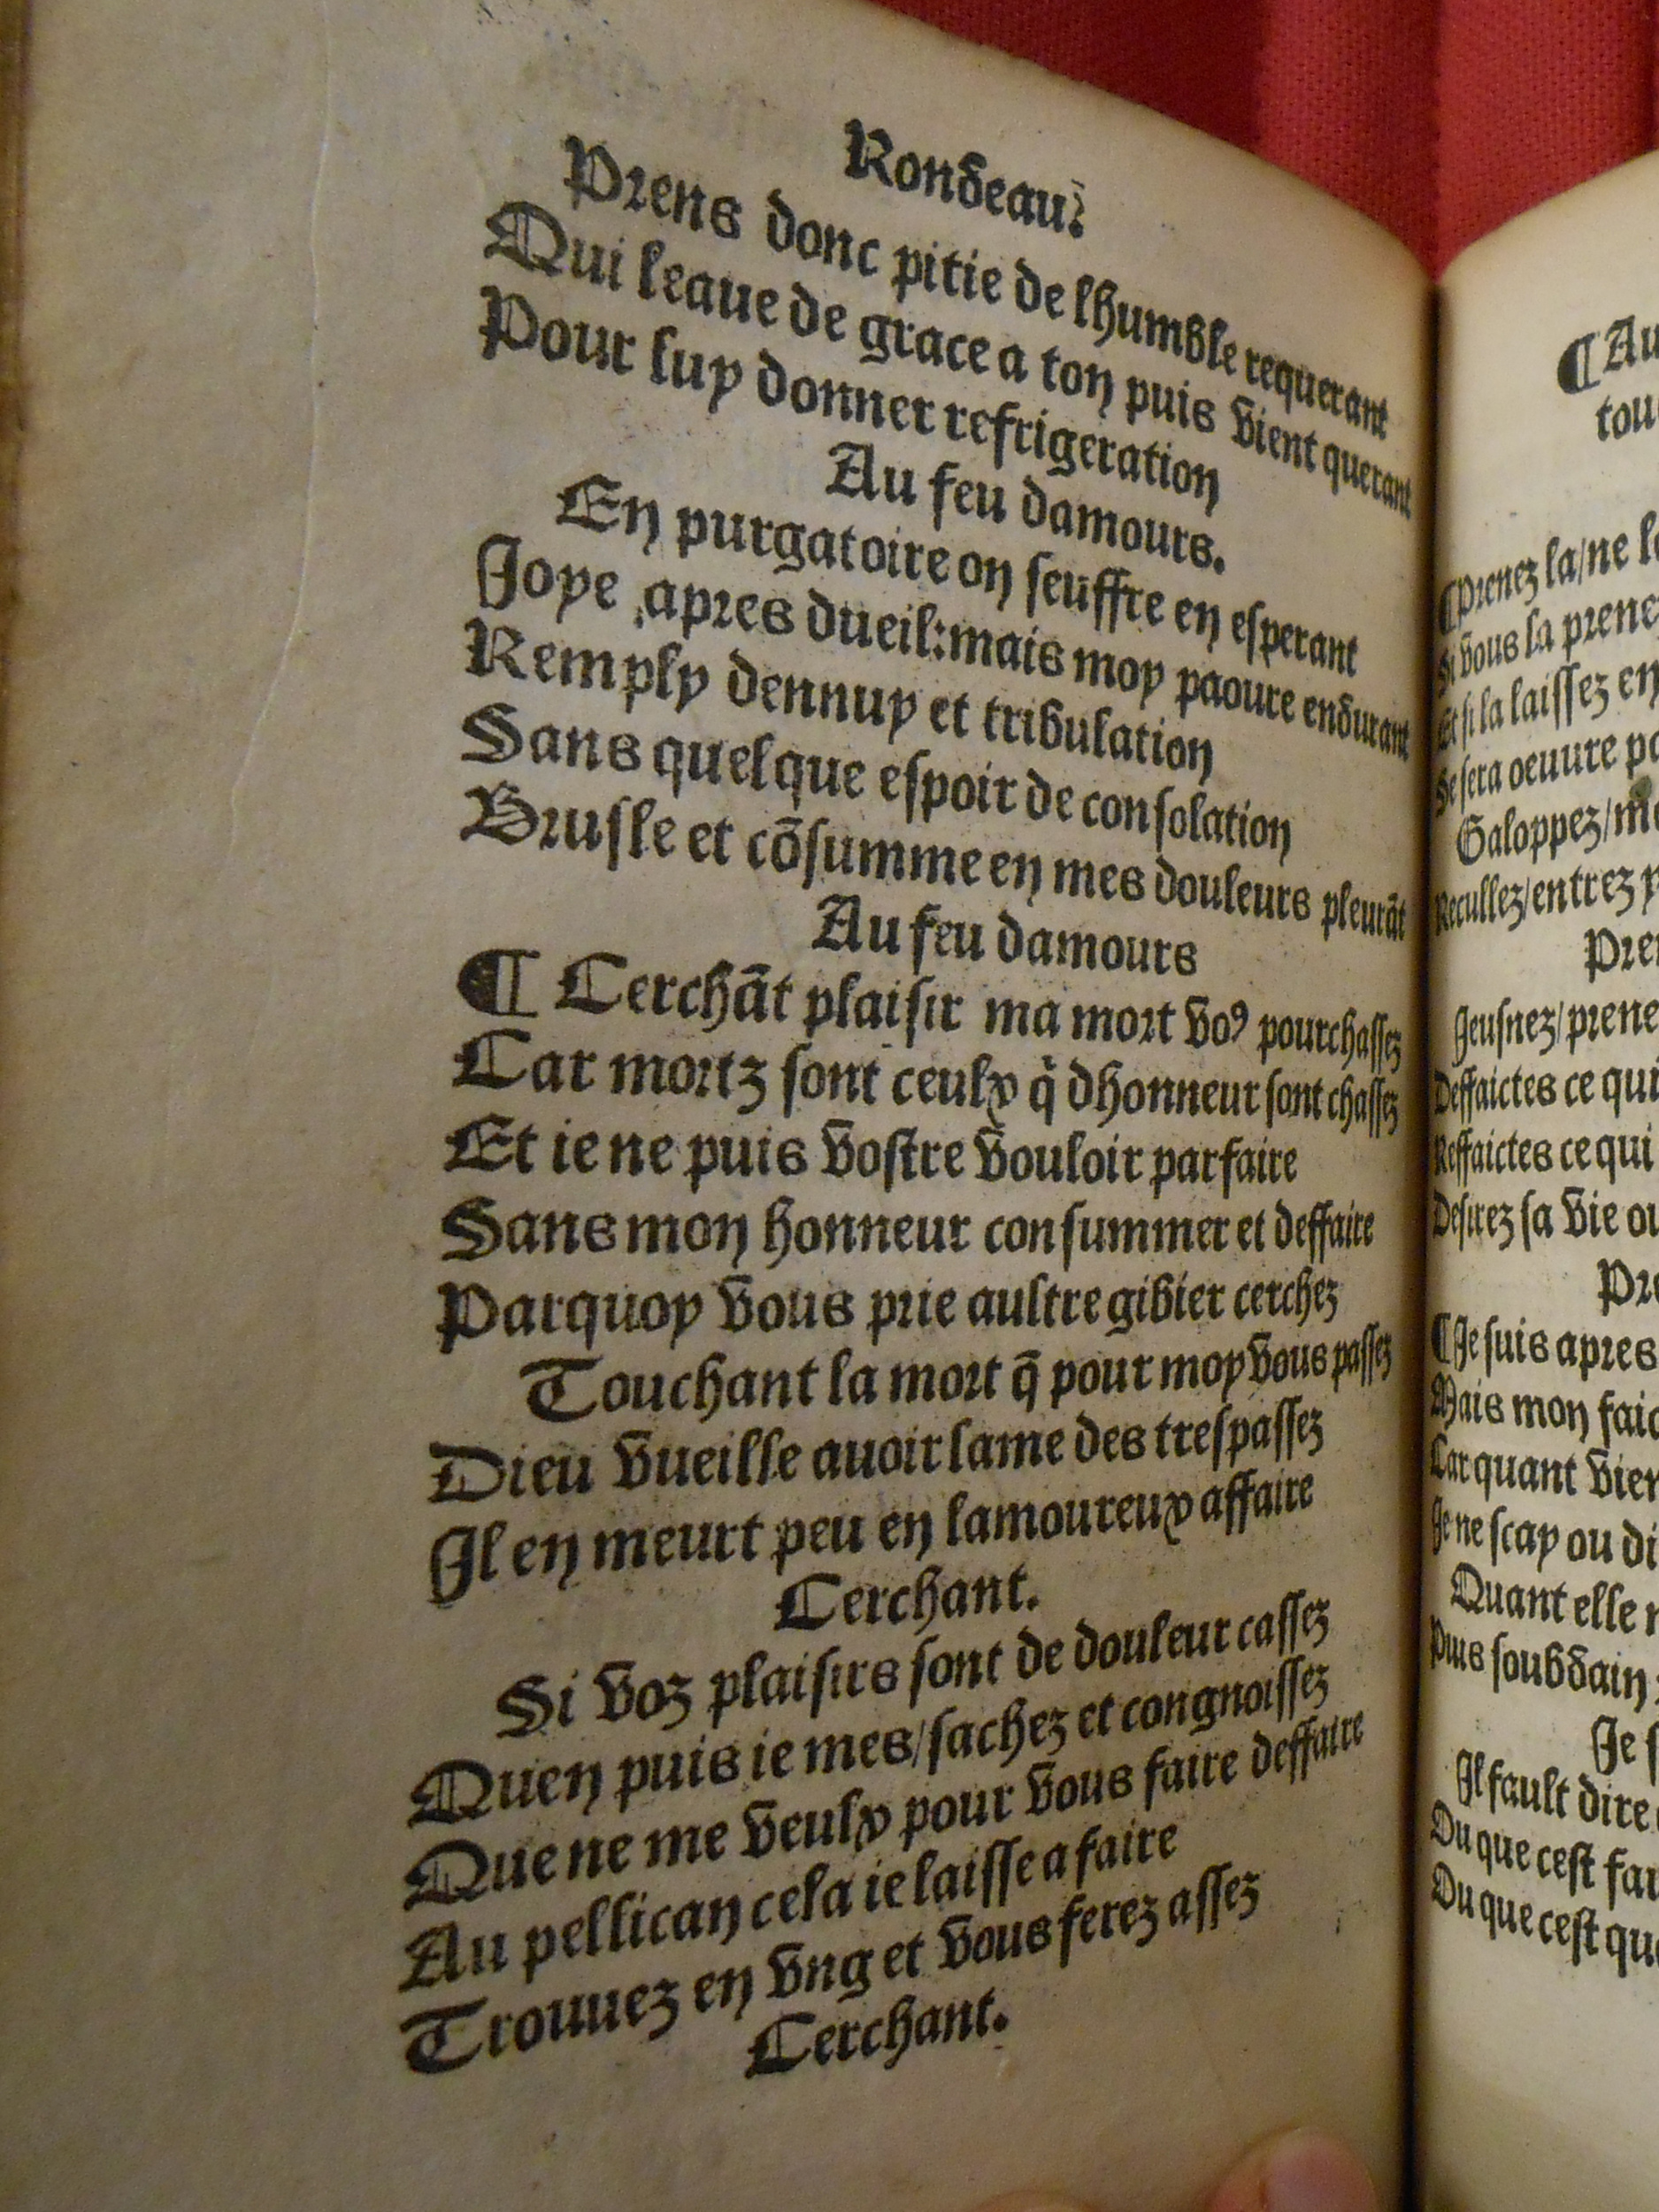 Rondeau?
Prens donc pitie de lhumble requerant
Qui leaue de grace a ton puis vient querant
Pour luy donner refrigeration
Au feu damours.
En purgatoire on seuffre en esperant
Joye apres dueil: mais moy paoure endurant
Remply dennuy et tribulation
Sans quelque espoir de consolation
Brusle et cõsumme en mes douleurs pleurãt
Au feu damours
¶ Cerchãt plaisir ma mort voꝰ pourchassez
Car mortz sont ceulx q̇ dhonneur sont chassez
Et ie ne puis vostre vouloir parfaire
Sans mon honneur consummer et deffaire
Parquoy vous prie aultre gibier cerchez
Touchant la mort q̄ pour moy vous passez
Dieu vueille auoir lame des trespassez
Il en meurt peu en lamoureux affaire
Cerchant.
Si voz plaisirs sont de douleur cassez
Quen puis ie mes/sachez et congnoissez
Que ne me veulx pour vous faire deffaire
Au pellican cela ie laisse a faire
Trouuez en vng et vous ferez assez
Cerchant.
¶ Au
tou
¶ Prenez la/ne
Si vous la prene
Et si la laissez en
Se sera oeuure
Galoppez/
Recullez/entrez
Pre
Jeusnez/prene
Deffaictes ce qui
Reffaictes ce qui
Desirez sa vie ou
Pre
¶ Je suis apres
Mais mon faic
Car quant vien
Je ne scay ou di
Quant elle
Puis soubdain
Je
Il fault dire
Ou que cest fai
Ou que cest que